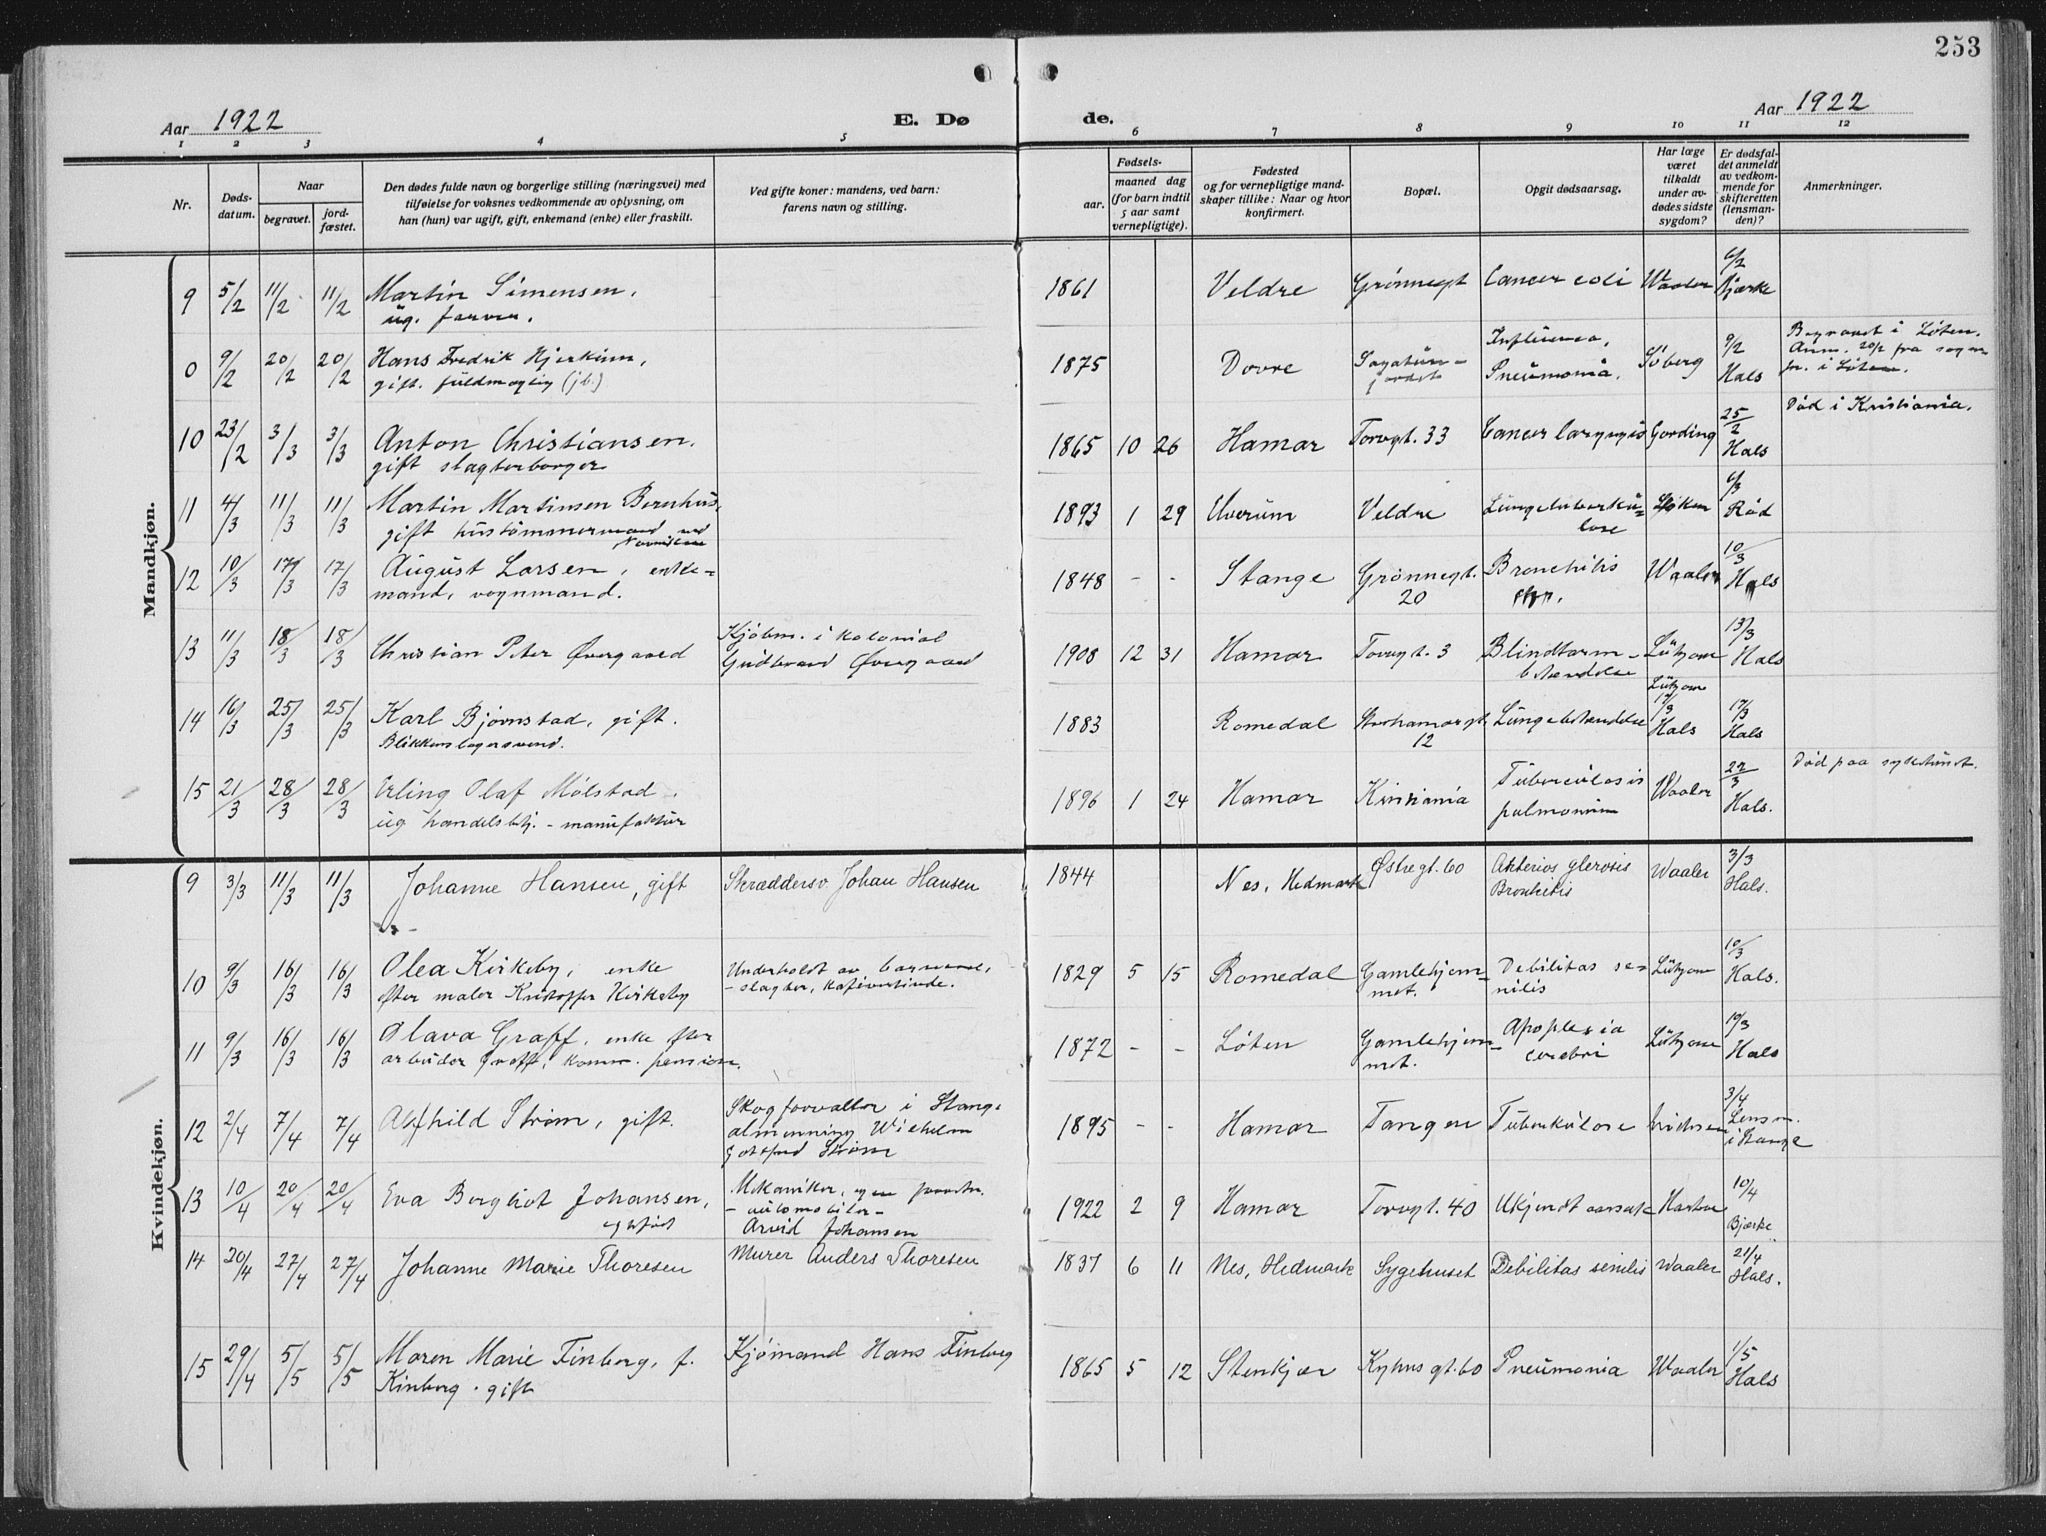 253
Aar 1922
E. Dø
de.
Aar 1922
1 2 3 4 5 6 7 8 9 10 11 12
Nr.
Døds-
datum.
Naar
begravet.
jord-
fæstet.
Den dødes fulde navn og borgerlige stilling (næringsvei) med
tilføielse for voksnes vedkommende av oplysning, om
han (hun) var ugift, gift, enkemand (enke) eller fraskilt.
Ved gifte koner: mandens, ved barn:
farens navn og stilling.
Fødsels-
aar.
maaned dag
(for barn indtil
5 aar samt
vernepligtige).
Fødested
og for vernepligtige mand-
skaper tillike: Naar og hvor
konfirmert.
Bopæl.
Opgit dødsaarsag.
Har læge
været
tilkaldt
under av-
dødes sidste
sygdom?
Er dødsfal-
det anmeldt
av vedkom-
mende for
skifteretten
(lensman-
den)?
Anmerkninger.
Mandkjøn.
9 5/2 11/2 11/2 Martin Simensen, 1861 Veldre Grønnegt Cancer coli Waaler 6/2 Bjerke
ug. farver.
0 9/2 20/2 20/2 Hans Fredrik Hjerkinn, 1875 Dovre Influensa, Søberg 9/2 Hals Begravet i Løten.
gift. fuldmægtig (jb.) Pneumonia. Anm. 20/2 fra sogne
pr. i Løten.
10 23/2 3/3 3/3 Anton Christiansen. 1865 10 26 Hamar Torvgt. 33 Cancer laryngis Gording 25/2 Hals Død i Kristiania.
gift slagterborger
11 4/3 11/3 11/3 Martin Martinsen Bernhus, 1893 1 29 Elverum Veldre Lungetuberku-
lose 6/3 Rød
gift hustømmermand ved
12 10/3 17/3 17/3 August Larsen, enke- 1848 - - Stange Grønnegt. 20 Bronchitis Waaler 10/3 Hals
mand, vognmand. chr.
13 11/3 18/3 18/3 Christian Peter Øvergaard Kjøbm. i kolonial
Gudbrand Øvergaard 1908 12 31 Hamar Torvgt. 3 Blindtarm-
betændelse Lützow 13/3 Hals
14 16/3 25/3 25/3 Karl Bjørnstad, gift. 1883 Romedal Storhamargt. 12 Lungebetændelse Lützow 17/3 Hals 17/3 Hals
Blikkenslagersvend.
15 21/3 28/3 28/3 Erling Olaf Mølstad. 1896 1 24 Hamar Kristiania Tuberculosis
pulmonum Waaler 22/3 Hals. Død paa sykehuset.
ug handelsbtj. - manufaktur
Kvindekjøn.
9 3/3 11/3 11/3 Johanne Hansen, gift Skræddersv. Johan Hansen 1844 Nes, Hedmark Østregt. 60 Arterios glerosis
Bronkitis Waaler 3/3 Hals.
10 9/3 16/3 16/3 Olea Kirkeby, enke Underholdt av barnene,
- slagter, kafevertinde. 1829 5 15 Romedal Gamlehjem-
met. Debilitas se-
nilis Lützow 10/3 Hals.
efter maler Kristoffer Kirkeby
11 9/3 16/3 16/3 Olava Graff, enke efter 1872 - - Løten Gamlehjem-
met. Apoplexia
cerebri Lützow 10/3 Hals
arbeider Graff, komm. pension.
12 2/4 7/4 7/4 Alfhild Strøm, gift. Skogforvalter i Stange
almenning Wilhelm
Gotfred Strøm 1895 - - Hamar Tangen Tuberkulose 3/4 Lensm.
i Stange
13 10/4 20/4 20/4 Eva Bergliot Johansen, Mekaniker, egen forretn.
- automobiler -
Arvid Johansen 1922 2 9 Hamar Torvgt. 40 Ukjendt aarsak 10/4 Bjerke
egtefødt
14 20/4 27/4 27/4 Johanne Marie Thoresen Murer Anders Thoresen 1837 6 11 Nes, Hedmark Sygehuset Debilitas senilis Waaler 21/4 Hals.
15 29/4 5/5 5/5 Maren Marie Finborg, f. Kjømand Hans Finborg 1865 5 12 Stenkjær Kyhns gt. 60 Pneumonia Waaler 1/5 Hals
Kinberg. gift